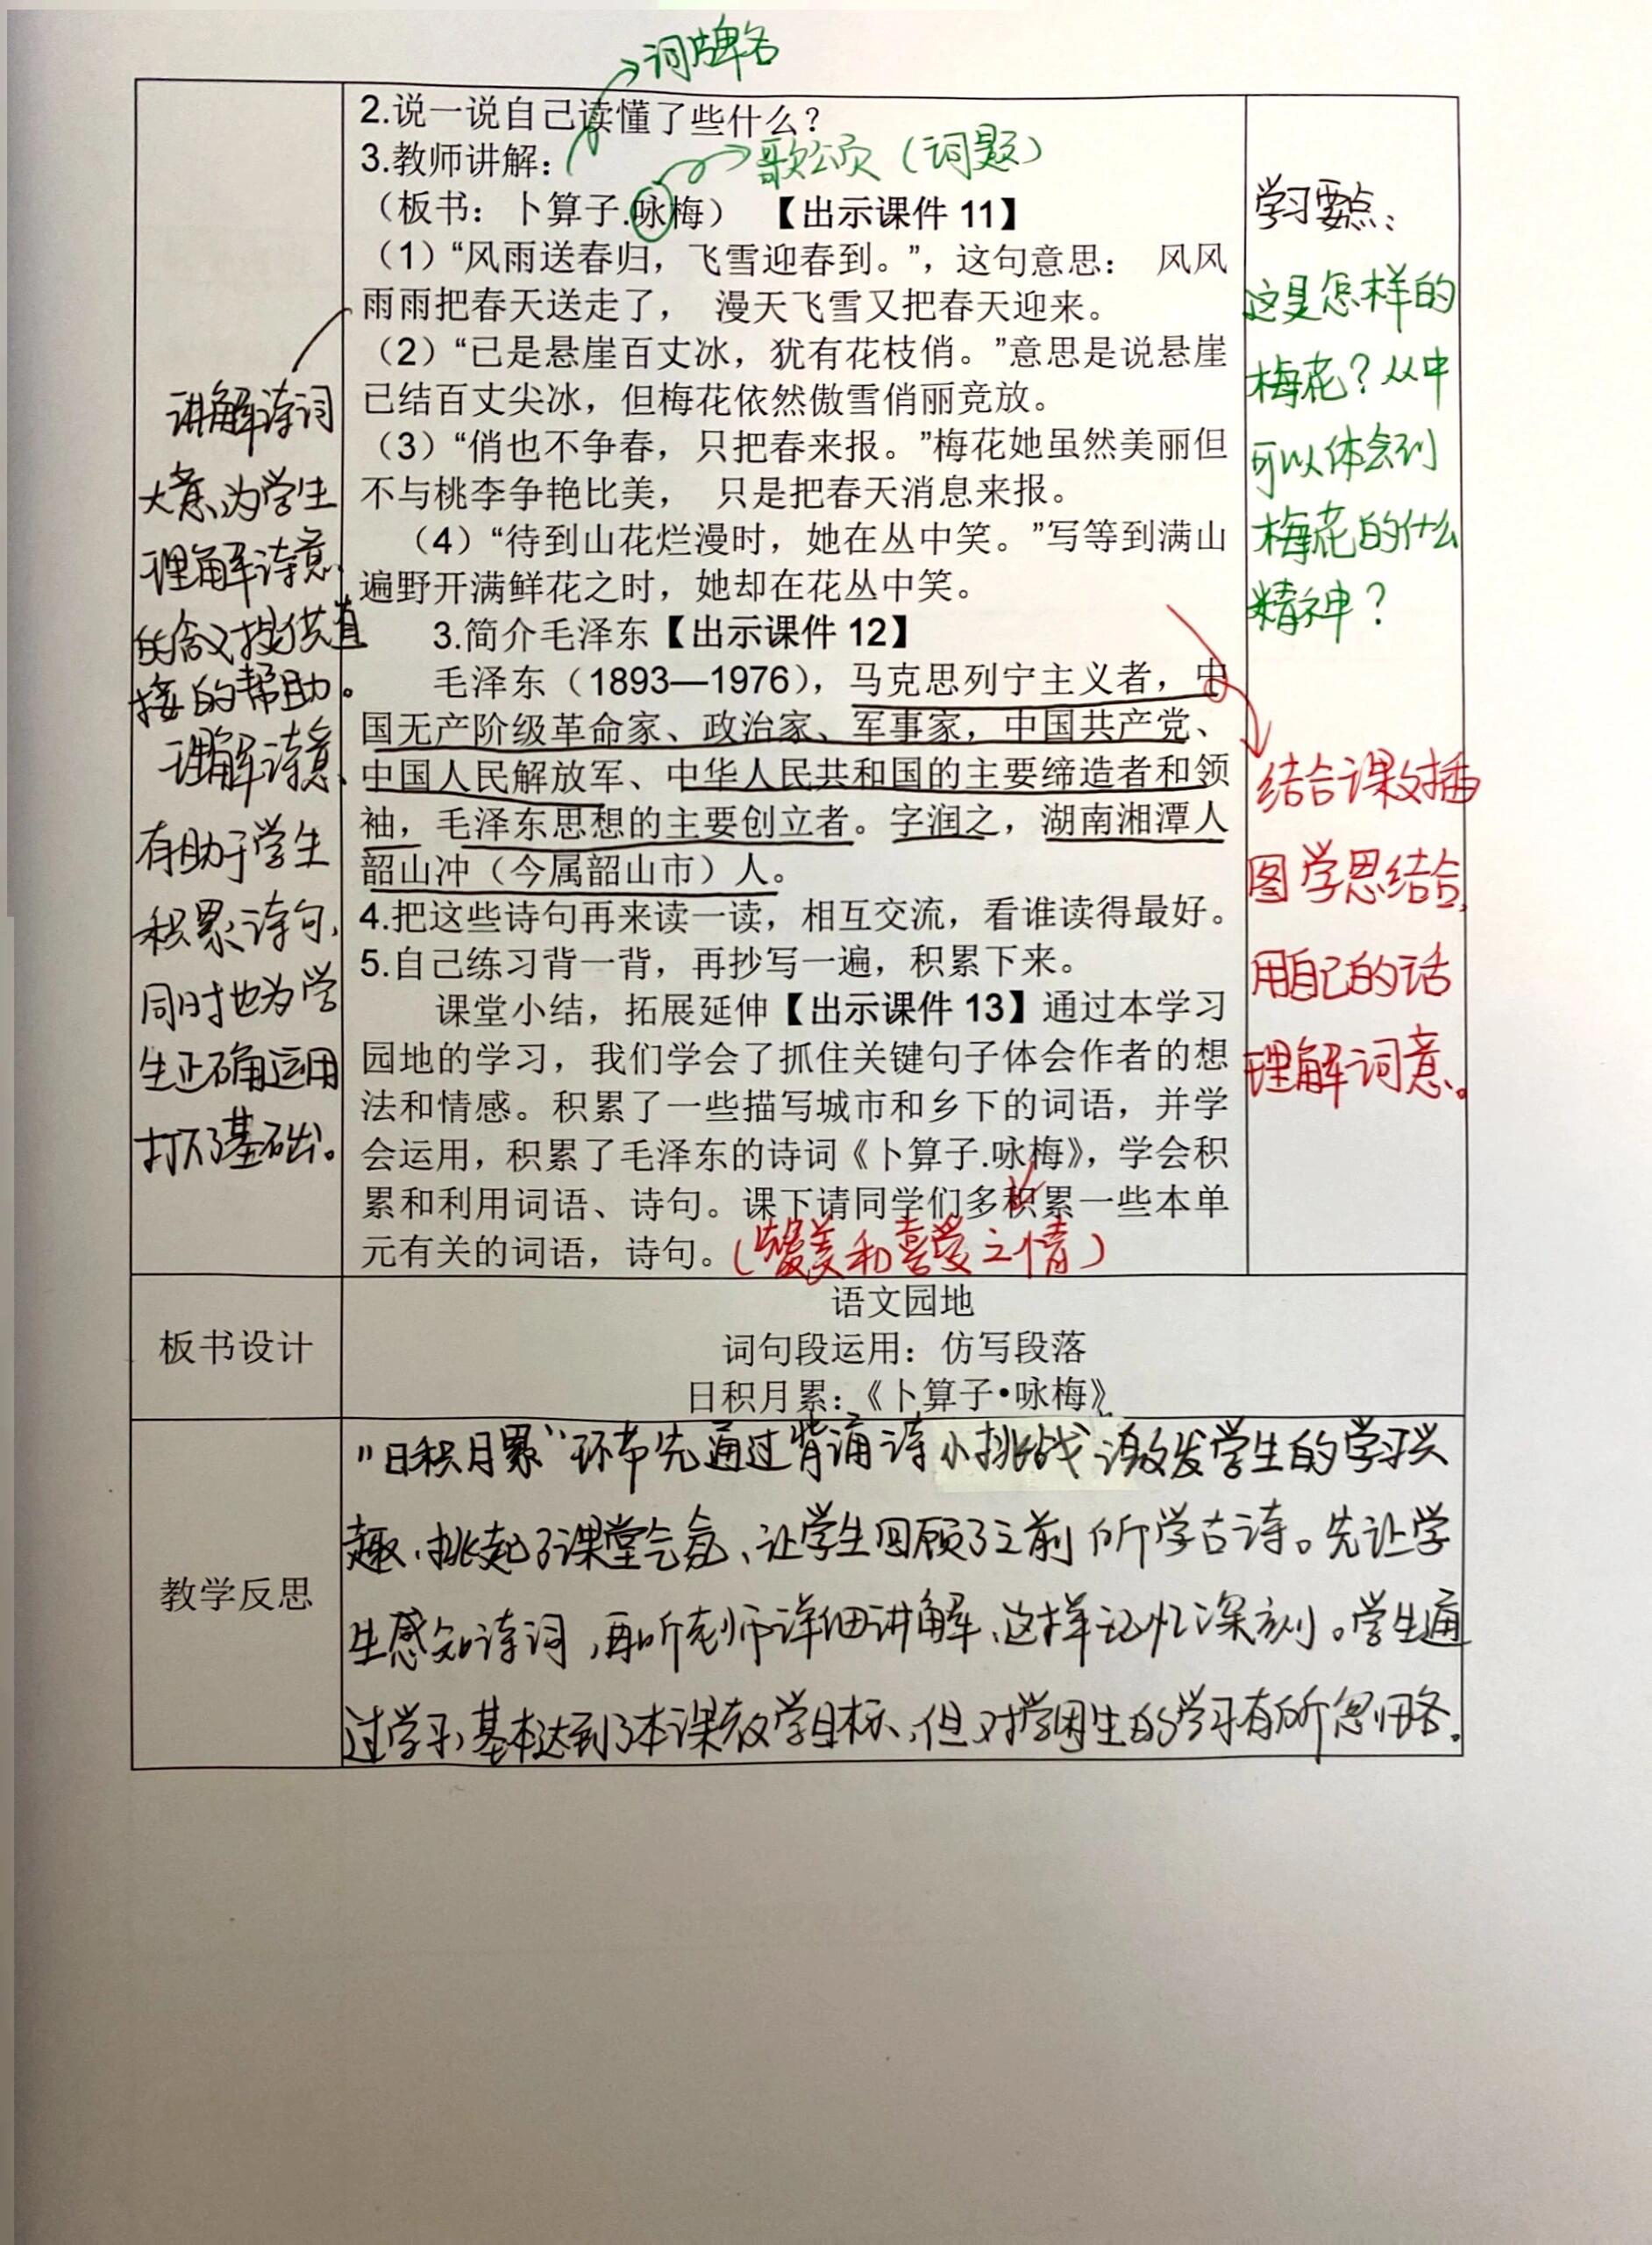 词牌名
2.说一说自己读懂了些什么?
3.教师讲解:
歌颂(词题)
(板书:卜算子.咏梅) 【出示课件 11】
(1)“风雨送春归,飞雪迎春到。”,这句意思: 风风
雨雨把春天送走了, 漫天飞雪又把春天迎来。
(2)“已是悬崖百丈冰,犹有花枝俏。”意思是说悬崖
已结百丈尖冰,但梅花依然傲雪俏丽竞放。
(3)“俏也不争春,只把春来报。”梅花她虽然美丽但
不与桃李争艳比美, 只是把春天消息来报。
(4)“待到山花烂漫时,她在丛中笑。”写等到满山
遍野开满鲜花之时,她却在花丛中笑。
3.简介毛泽东【出示课件 12】
毛泽东(1893—1976),马克思列宁主义者,中
国无产阶级革命家、政治家、军事家,中国共产党、
中国人民解放军、中华人民共和国的主要缔造者和领
袖,毛泽东思想的主要创立者。字润之,湖南湘潭人
韶山冲(今属韶山市)人。
4.把这些诗句再来读一读,相互交流,看谁读得最好。
5.自己练习背一背,再抄写一遍,积累下来。
课堂小结,拓展延伸【出示课件 13】通过本学习
园地的学习,我们学会了抓住关键句子体会作者的想
法和情感。积累了一些描写城市和乡下的词语,并学
会运用,积累了毛泽东的诗词《卜算子.咏梅》,学会积
累和利用词语、诗句。课下请同学们多积累一些本单
元有关的词语,诗句。(赞美和喜爱之情)
讲解诗词
大意,为学生
理解诗意
的含义提供直
接的帮助。
理解诗意、
有助于学生
积累诗句,
同时也为学
生正确运用
打下了基础。
学习要点:
这是怎样的
梅花?从中
可以体会到
梅花的什么
精神?
结合课文插
图学思结合,
用自己的话
理解词意。
板书设计
语文园地
词句段运用:仿写段落
日积月累:《卜算子•咏梅》
教学反思
"日积月累"环节先通过背诵诗小挑战激发学生的学习兴
趣,挑起了课堂气氛、让学生回顾了之前所学古诗。先让学
生感知诗词,再听老师详细讲解、这样记忆深刻。学生通
过学习,基本达到了本课教学目标、但对学困生的学习有所忽略.